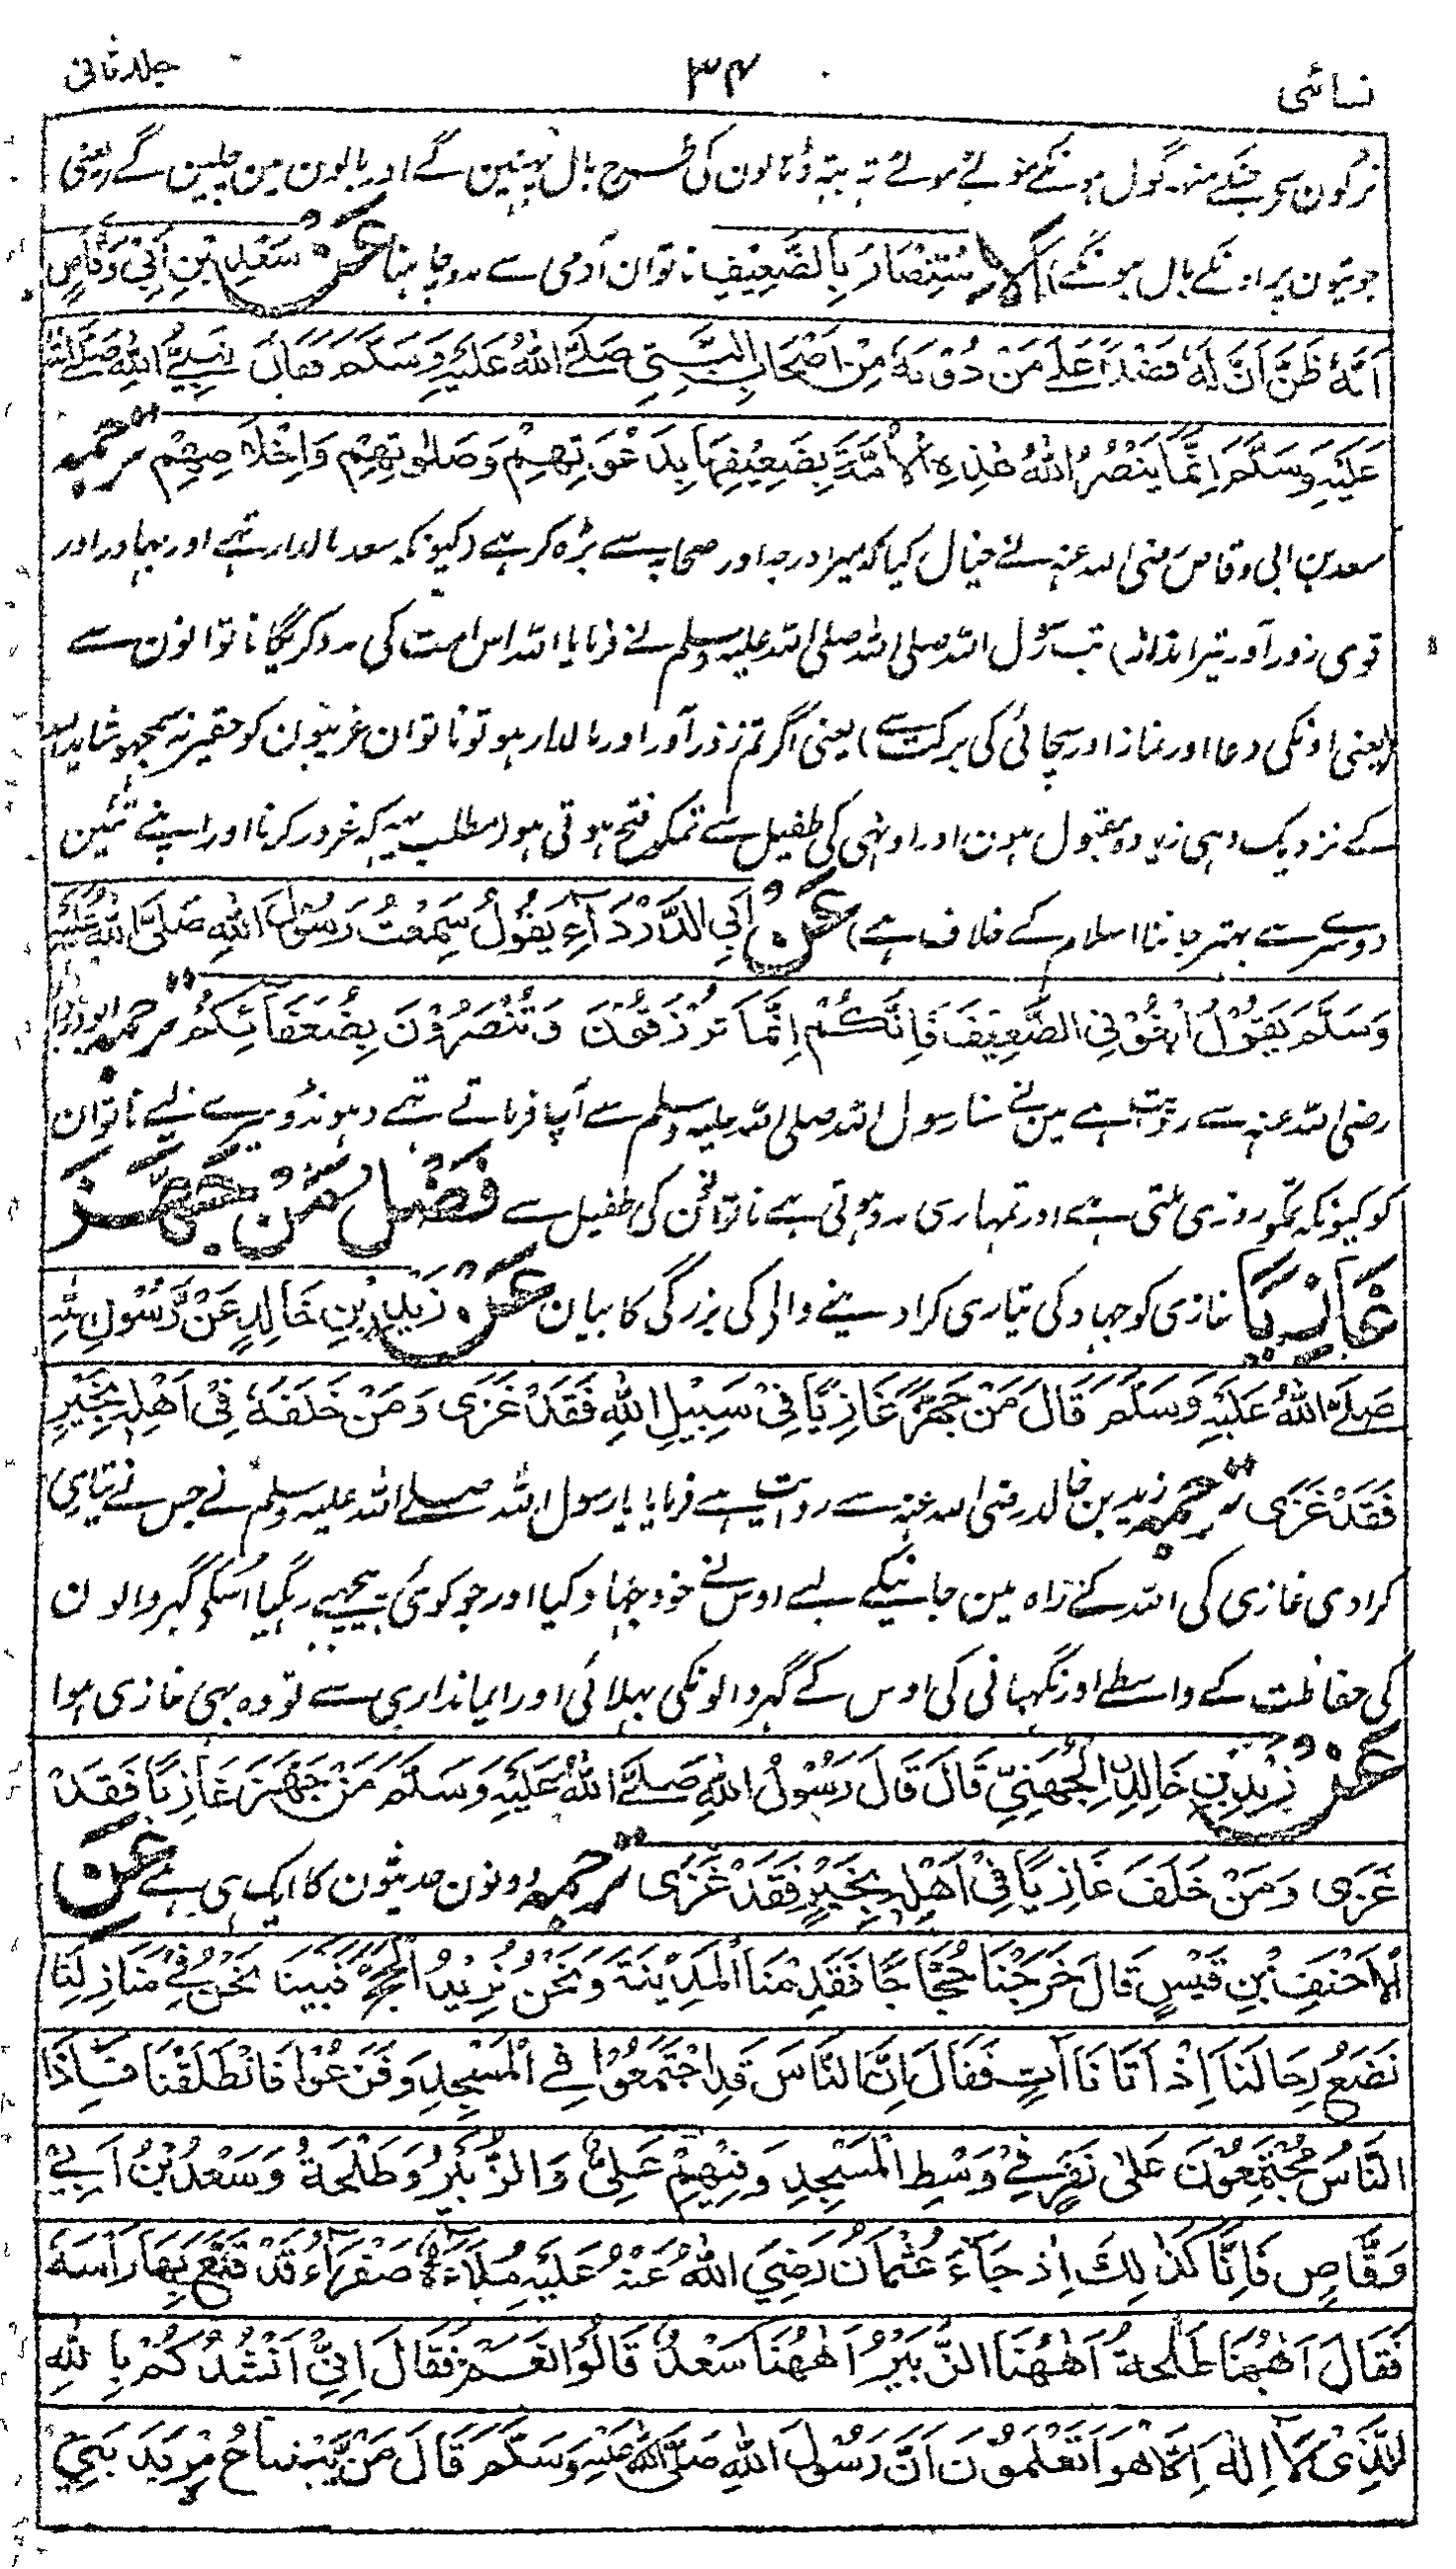 نسائی ۳۴ جلد ثانی
ترکون سے جنکے منہ گول ہونگے موٹے موٹے تہ بتہ ڈہالون کی طرح بال پہنین گے اور بالون مین چلین گے (یعنی
جوتیون پر اونکے بال ہونگے) اَلْاِسْتِنْصَارُ بِالضَّعِيْفِ ناتوان آدمی سے مدد چاہنا عَنْ سَعْدِ بْنِ اَبِيْ وَقَّاصٍ
اَنَّهٗ ظَنَّ اَنَّ لَهٗ فَضْلًا عَلٰے مَنْ دُوْنَهٗ مِنْ اَصْحَابِ النَّبِيِّ صَلَّے اللّٰهُ عَلَيْهِ وَسَلَّمَ فَقَالَ نَبِيُّ اللّٰهِ صَلَّے اللّٰهُ
عَلَيْهِ وَسَلَّمَ اِنَّمَا يَنْصُرُ اللّٰهُ هٰذِهِ الْاُمَّةَ بِضَعِيْفِهَا بِدَعْوَتِهِمْ وَصَلٰوتِهِمْ وَاِخْلَاصِهِمْ ترجمہ
سعد بن ابی وقاص رضی اللہ عنہ نے خیال کیا کہ میرا درجہ اور صحابہ سے بڑہ کر ہے (کیونکہ سعد مالدار تہے اور بہادر اور
قوی زور آور تیر انداز) تب رسول اللہ صلی اللہ صلی اللہ علیہ وسلم نے فرمایا اللہ اس امت کی مدد کریگا ناتوانون سے
(یعنی اونکی دعا اور نماز اور سچائی کی برکت سے) یعنی اگر تم زور آور اور مالدار ہو تو ناتوان غریبون کو حقیر نہ سمجہو شاید اللہ
کے نزدیک وہی زیادہ مقبول ہون اور اونہی کی طفیل سے تمکو فتح ہوتی ہو (مطلب یہہ کہ غرور کرنا اور اپنے تئین
دوسرے سے بہتر جاننا اسلام کے خلاف ہے) عَنْ اَبِي الدَّرْدَآءِ يَقُوْلُ سَمِعْتُ رَسُوْلَ اللّٰهِ صَلَّى اللّٰهُ عَلَيْهِ
وَسَلَّمَ يَقُوْلُ ابْغُوْنِي الضَّعِيْفَ فَاِنَّكُمْ اِنَّمَا تُرْزَقُوْنَ وَتُنْصَرُوْنَ بِضُعَفَآئِكُمْ ترجمہ ابودردا
رضی اللہ عنہ سے روایت ہے مین نے سنا رسول اللہ صلی اللہ علیہ وسلم سے آپ فرماتے تہے ڈہونڈو میرے لیے ناتوان
کو کیونکہ تمکو روزی ملتی ہے اور تمہاری مدد ہوتی ہے ناتوانون کی طفیل سے فَضْلُ مَنْ جَهَّزَ
غَازِيًا غازی کو جہاد کی تیاری کرا دینے والے کی بزرگی کا بیان عَنْ زَيْدِ بْنِ خَالِدٍ عَنْ رَّسُوْلِ اللّٰهِ
صَلَّے اللّٰهُ عَلَيْهِ وَسَلَّمَ قَالَ مَنْ جَهَّزَ غَازِيًا فِيْ سَبِيْلِ اللّٰهِ فَقَدْ غَزٰى وَمَنْ خَلَفَهٗ فِيْ اَهْلِهٖ بِخَيْرٍ
فَقَدْ غَزٰى ترجمہ زید بن خالد رضی اللہ عنہ سے روایت ہے فرمایا یا رسول اللہ صلے اللہ علیہ وسلم نے جس نے تیاری
کرا دی غازی کی اللہ کے راہ مین جانیکے لیے اوس نے خود جہاد کیا اور جو کوئی پیچہے رہگیا اسکے گہر والون
کی حفاظت کے واسطے اور نگہبانی کی اوس کے گہر والونکی بہلائی اور ایمانداری سے تو وہ بہی غازی ہوا
عَنْ زَيْدِ بْنِ خَالِدِ الْجُهَنِيِّ قَالَ قَالَ رَسُوْلُ اللّٰهِ صَلَّے اللّٰهُ عَلَيْهِ وَسَلَّمَ مَنْ جَهَّزَ غَازِيًا فَقَدْ
غَزٰى وَمَنْ خَلَفَ غَازِيًا فِيْ اَهْلِهٖ بِخَيْرٍ فَقَدْ غَزٰى ترجمہ دونون حدیثون کا ایک ہی ہے عَنِ
الْاَحْنَفِ بْنِ قَيْسٍ قَالَ خَرَجْنَا حُجَّاجًا فَقَدِمْنَا الْمَدِيْنَةَ وَنَحْنُ نُرِيْدُ الْحَجَّ فَبَيْنَا نَحْنُ فِيْ مَنَازِلِنَا
نَضَعُ رِحَالَنَا اِذْ اَتَانَا اٰتٍ فَقَالَ اِنَّ النَّاسَ قَدِ اجْتَمَعُوْا فِي الْمَسْجِدِ وَفَزِعُوْا فَانْطَلَقْنَا فَاِذَا
النَّاسُ مُجْتَمِعُوْنَ عَلٰى نَفَرٍ فِيْ وَسْطِ الْمَسْجِدِ وَفِيْهِمْ عَلِيٌّ وَالزُّبَيْرُ وَطَلْحَةُ وَسَعْدُ بْنُ اَبِيْ
وَقَّاصٍ فَاِنَّا كَذٰلِكَ اِذْ جَآءَ عُثْمَانُ رَضِيَ اللّٰهُ عَنْهُ عَلَيْهِ مُلَآءَةٌ صَفْرَآءُ قَدْ قَنَّعَ بِهَا رَاْسَهٗ
فَقَالَ اَهٰهُنَا طَلْحَةُ اَهٰهُنَا الزُّبَيْرُ اَهٰهُنَا سَعْدٌ قَالُوْا نَعَمْ فَقَالَ اِنِّيْ اَنْشُدُكُمْ بِاللّٰهِ
الَّذِيْ لَآ اِلٰهَ اِلَّا هُوَ اَتَعْلَمُوْنَ اَنَّ رَسُوْلَ اللّٰهِ صَلَّى اللّٰهُ عَلَيْهِ وَسَلَّمَ قَالَ مَنْ يَّبْتَاعُ مِرْبَدَ بَنِيْ